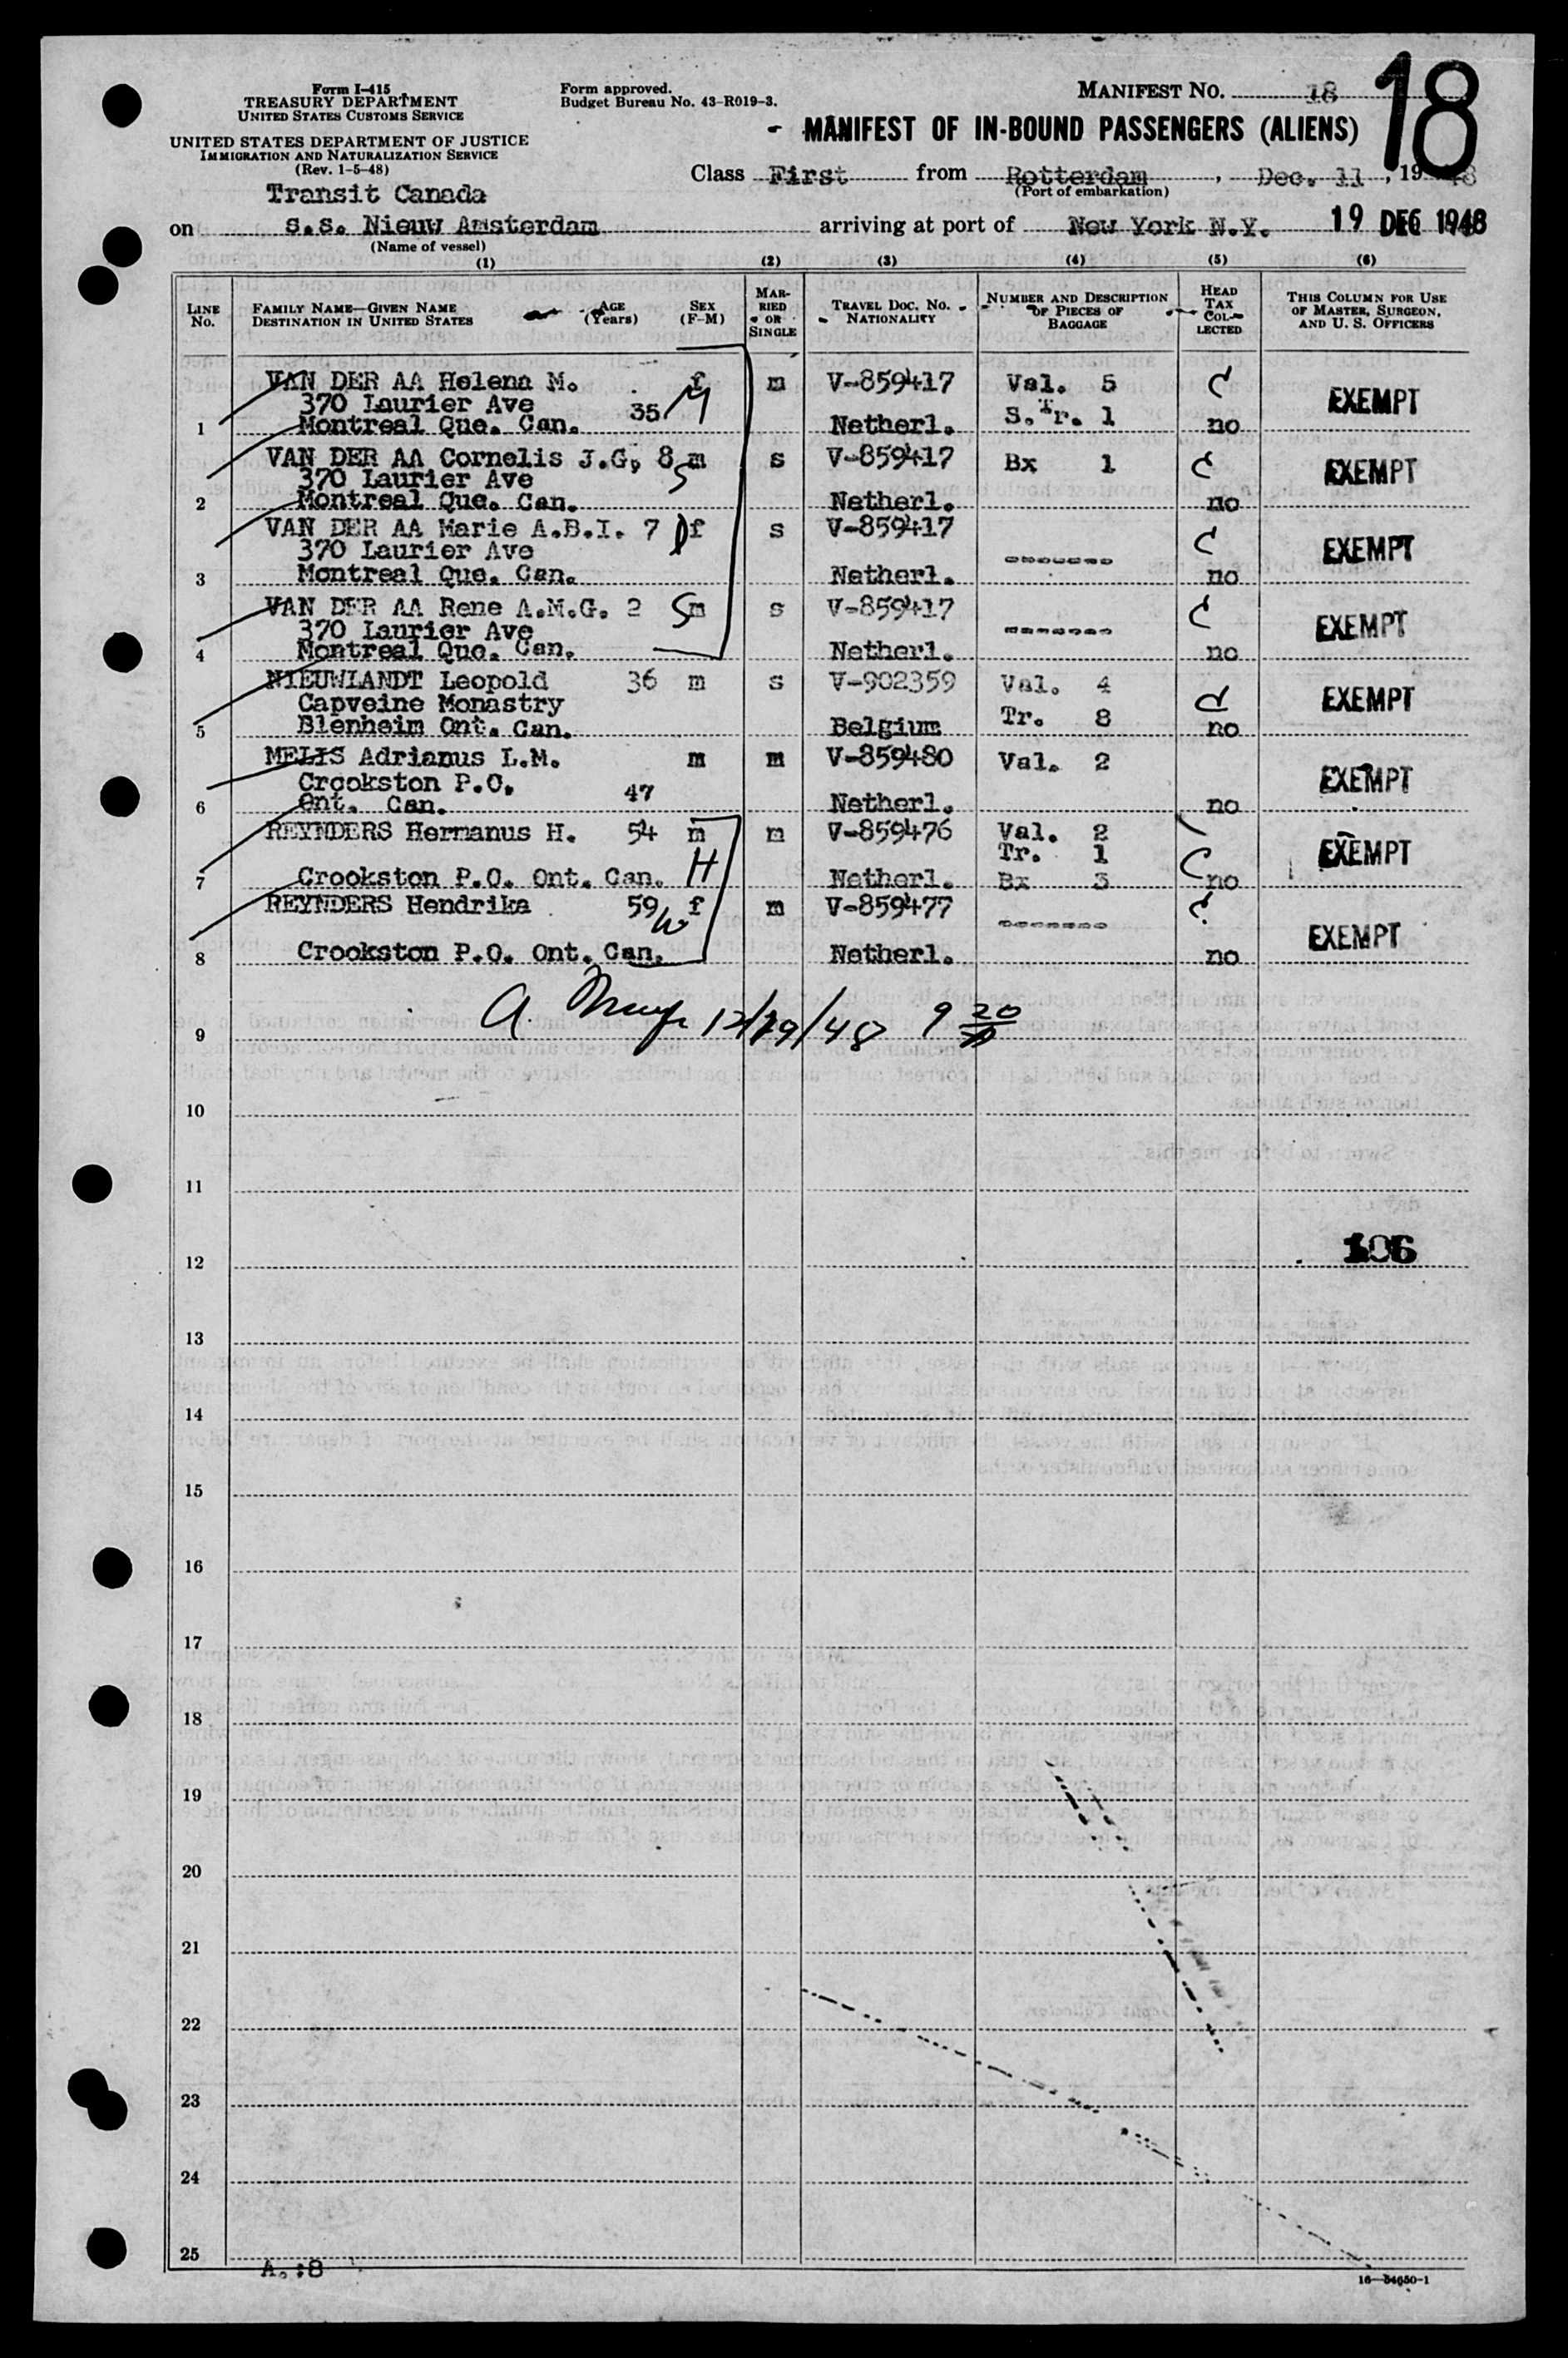 Form I-415
TREASURY DEPARTMENT
UNITED STATES CUSTOMS SERVICE
UNITED STATES DEPARTMENT OF JUSTICE
IMMIGRATION AND NATURALIZATION SERVICE
(Rev. 1-5-48)
Form approved.
Budget Bureau No. 43-R019-3.
MANIFEST NO. 18
18
MANIFEST OF IN-BOUND PASSENGERS (ALIENS)
Class First from Rotterdam, Dec. 11, 1948
(Port of embarkation)
Transit Canada
on s.s. Nieuw Amsterdam arriving at port of New York N.Y. 19 DEC 1948
(Name of vessel)
(1) (2) (3) (4) (5) (6)
LINE No. FAMILY NAME—GIVEN NAME DESTINATION IN UNITED STATES AGE (Years) SEX (F-M) MARRIED OR SINGLE TRAVEL DOC. NO. NATIONALITY NUMBER AND DESCRIPTION OF PIECES OF BAGGAGE HEAD TAX COLLECTED THIS COLUMN FOR USE OF MASTER, SURGEON, AND U. S. OFFICERS
VAN DER AA Helena M. f m V-859417 Val. 5
370 Laurier Ave 35 M S.Tr. 1 EXEMPT
1 Montreal Que. Can. Netherl. no
VAN DER AA Cornelis J.G, 8 m s V-859417 Bx 1
370 Laurier Ave S EXEMPT
2 Montreal Que. Can. Netherl. no
VAN DER AA Marie A.B.I. 7 D f s V-859417
370 Laurier Ave ------- EXEMPT
3 Montreal Que. Can. Netherl. no
VAN DER AA Rene A.M.G. 2 S m s V-859417
370 Laurier Ave ------- EXEMPT
4 Montreal Que. Can. Netherl. no
NIEUWLANDT Leopold 36 m s V-902359 Val. 4
Capveine Monastry EXEMPT
5 Blenheim Ont. Can. Belgium Tr. 8 no
MELIS Adrianus L.M. m m V-859480 Val. 2
Crookston P.O, 47 EXEMPT
6 Ont. Can. Netherl. no
REYNDERS Hermanus H. 54 m m V-859476 Val. 2
H Tr. 1 EXEMPT
7 Crookston P.O. Ont. Can. Netherl. Bx 3 no
REYNDERS Hendrika 59 W f m V-859477
------- EXEMPT
8 Crookston P.O. Ont. Can. Netherl. no
9 A. 12/19/48 9 20
10
11
12 106
13
14
15
16
17
18
19
20
21
22
23
24
25
A.:8
16—54650-1